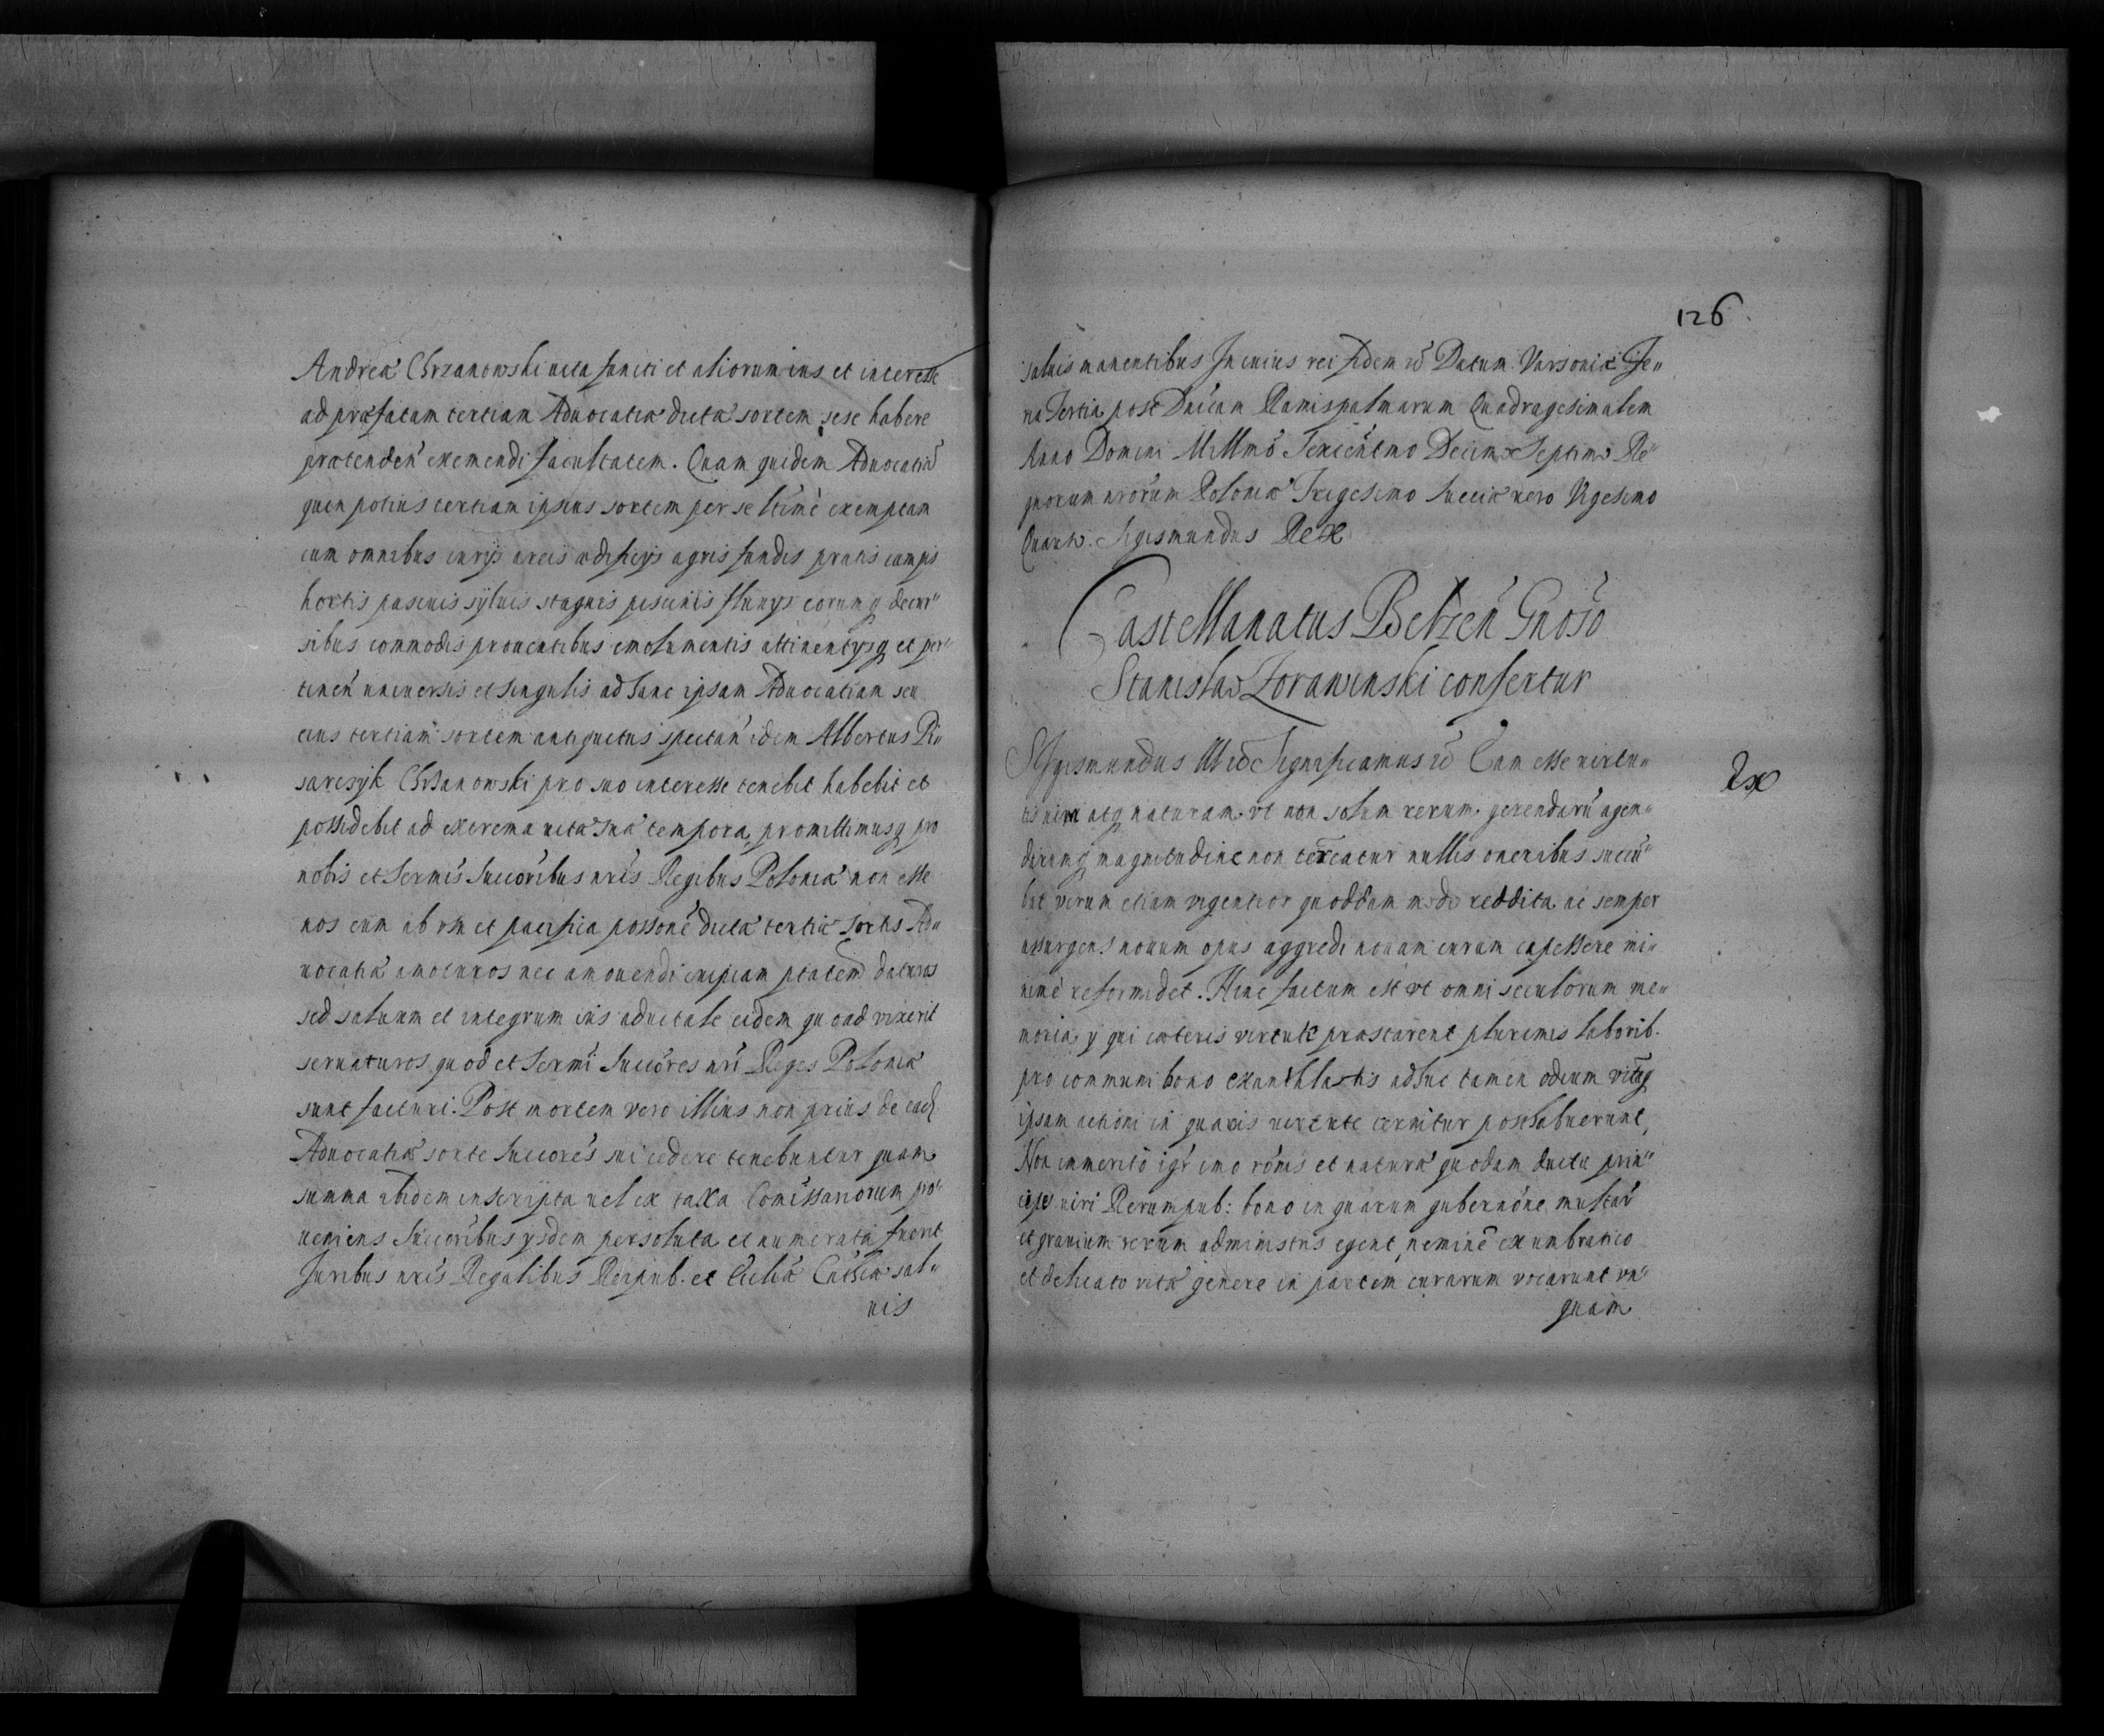 Andreæ Chrzanowski uita functi et aliorum ius et interesse
ad præfatam tertiam Aduocatiæ dictæ sortem sese habere
prætenden̄ exemendi facultatem. Quam quidem Aduocatiā
quin potius tertiam ipsius sortem per se ltime exemptam
cum omnibus curijs areis ædificijs agris fundis pratis campis
hortis pascuis syluis stagnis piscinis fluuijs eorumq decur"
sibus commodis prouentibus emolumentis attinentijsq et per"
tinen̄ uniuersis et singulis ad hanc ipsam Aduocatiam seu
eius tertiam sortem antiquitus spectan̄ idem Albertus Pi"
sarczyk Chrzanowski pro suo interesse tenebit habebit et
possidebit ad extrema uitæ suæ tempora, promittimusq pro
nobis et Sermis Succoribus nris Regibus Poloniæ non esse
nos eum ab usu et pacifica possone dictæ tertiæ sortis Ad"
uocatiæ amoturos nec amouendi cuipiam ptatem daturos
sed saluum et integrum ius aduitale eidem quoad vixerit
seruaturos, quod et Sermi Succores nri Reges Poloniæ
sunt facturi. Post mortem vero illius non prius de ead
Aduocatiæ sorte Succores sui cedere tenebuntur quam
summa ibidem inscripta uel ex taxa Comissariorum pro"
ueniens Succoribus ysdem persoluta et numerata fuerit
Juribus nris Regalibus Reipub. et Ecclia Cathca sal"
uis
126
saluis manentibus In cuius rei fidem etc Datum Varsouiæ Fe"
ria Tertia post Dnicam Ramispalmarum Quadragesimalem
Anno Domini Millmo Sexcentmo Decimo Septimo Re"
gnorum nrorum Poloniæ Trigesimo Sueciæ uero Vigesimo
Quarto. Sigismundus Rex
Castellanatus Belzen̄ Gnoso
Stanislao Zorawinski confertur
Sigismundus III etc Significamus etc Eam esse virtu"
tis uim atq naturam vt non solum rerum gerendarū agen"
darumq magnitudine non terreatur nullis oneribus succū"
bat verum etiam vigentior quoddam modo reddita ac semper
assurgens nouum opus aggredi nouam curam capessere mi"
nime reformidet. Hinc factum est vt omni seculorum me"
moria, y qui cæteris virtute præstarent plurimis laborib.
pro communi bono exanthlatis adhuc tamen odium vitæq
ipsam actioni in quauis uirtute cernitur posthabuerunt,
Non immerito igr imo ronis et naturæ quodam ductu prin"
cipes uiri Rerumpub: bono in quarum gubernone multar
et grauium rerum administris egent, neminē ex umbratico
et delicato vitæ genere in partem curarum vocarunt vn"
quam